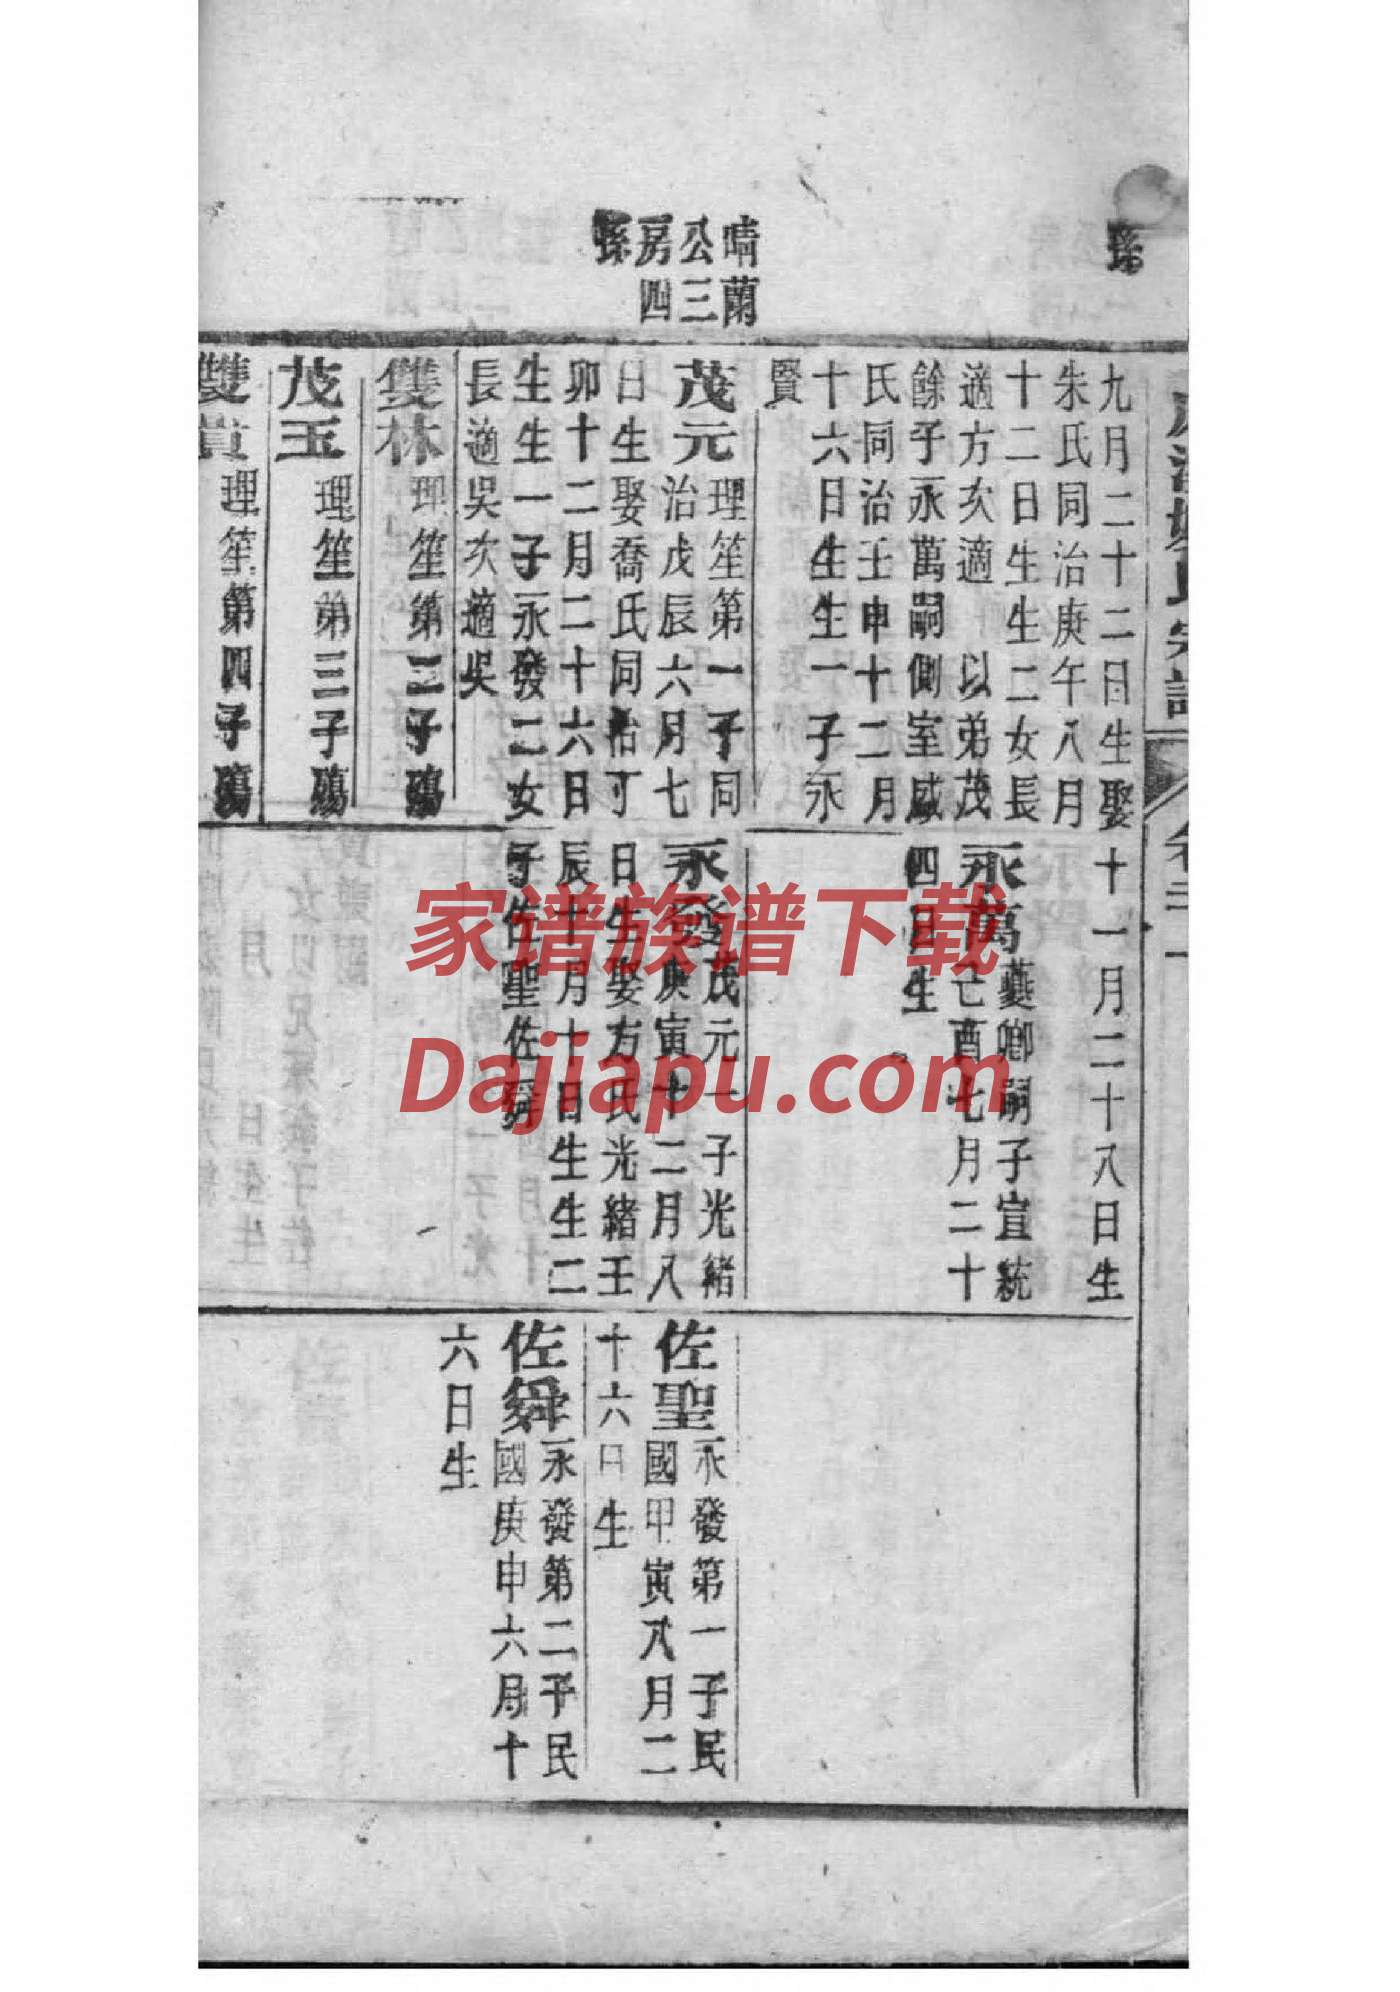 孫
晴蘭
公三
房四
孫
九月二十二日生娶
朱氏同治庚午八月
十二日生生二女長
適方次適 以弟茂
餘子永萬嗣側室戚
氏同治壬申十二月
十六日生生一子永
賢
茂元理笙第一子同
治戊辰六月七
日生娶喬氏同治丁
卯十二月二十六日
生生一子永發二女
長適吳次適吳
雙林理笙第二子殤
茂玉理笙第三子殤
雙貴理笙第四子殤
十一月二十八日生
永萬藝卿嗣子宣統
己酉七月二十
四日生
永發茂元一子光緒
庚寅十二月八
日生娶方氏光緒壬
辰十月十日生生二
子佐聖佐舜
佐聖永發第一子民
國甲寅八月二
十六日生
佐舜永發第二子民
國庚申六月十
六日生
氏宗譜
家谱族谱下载
Dajiapu.com